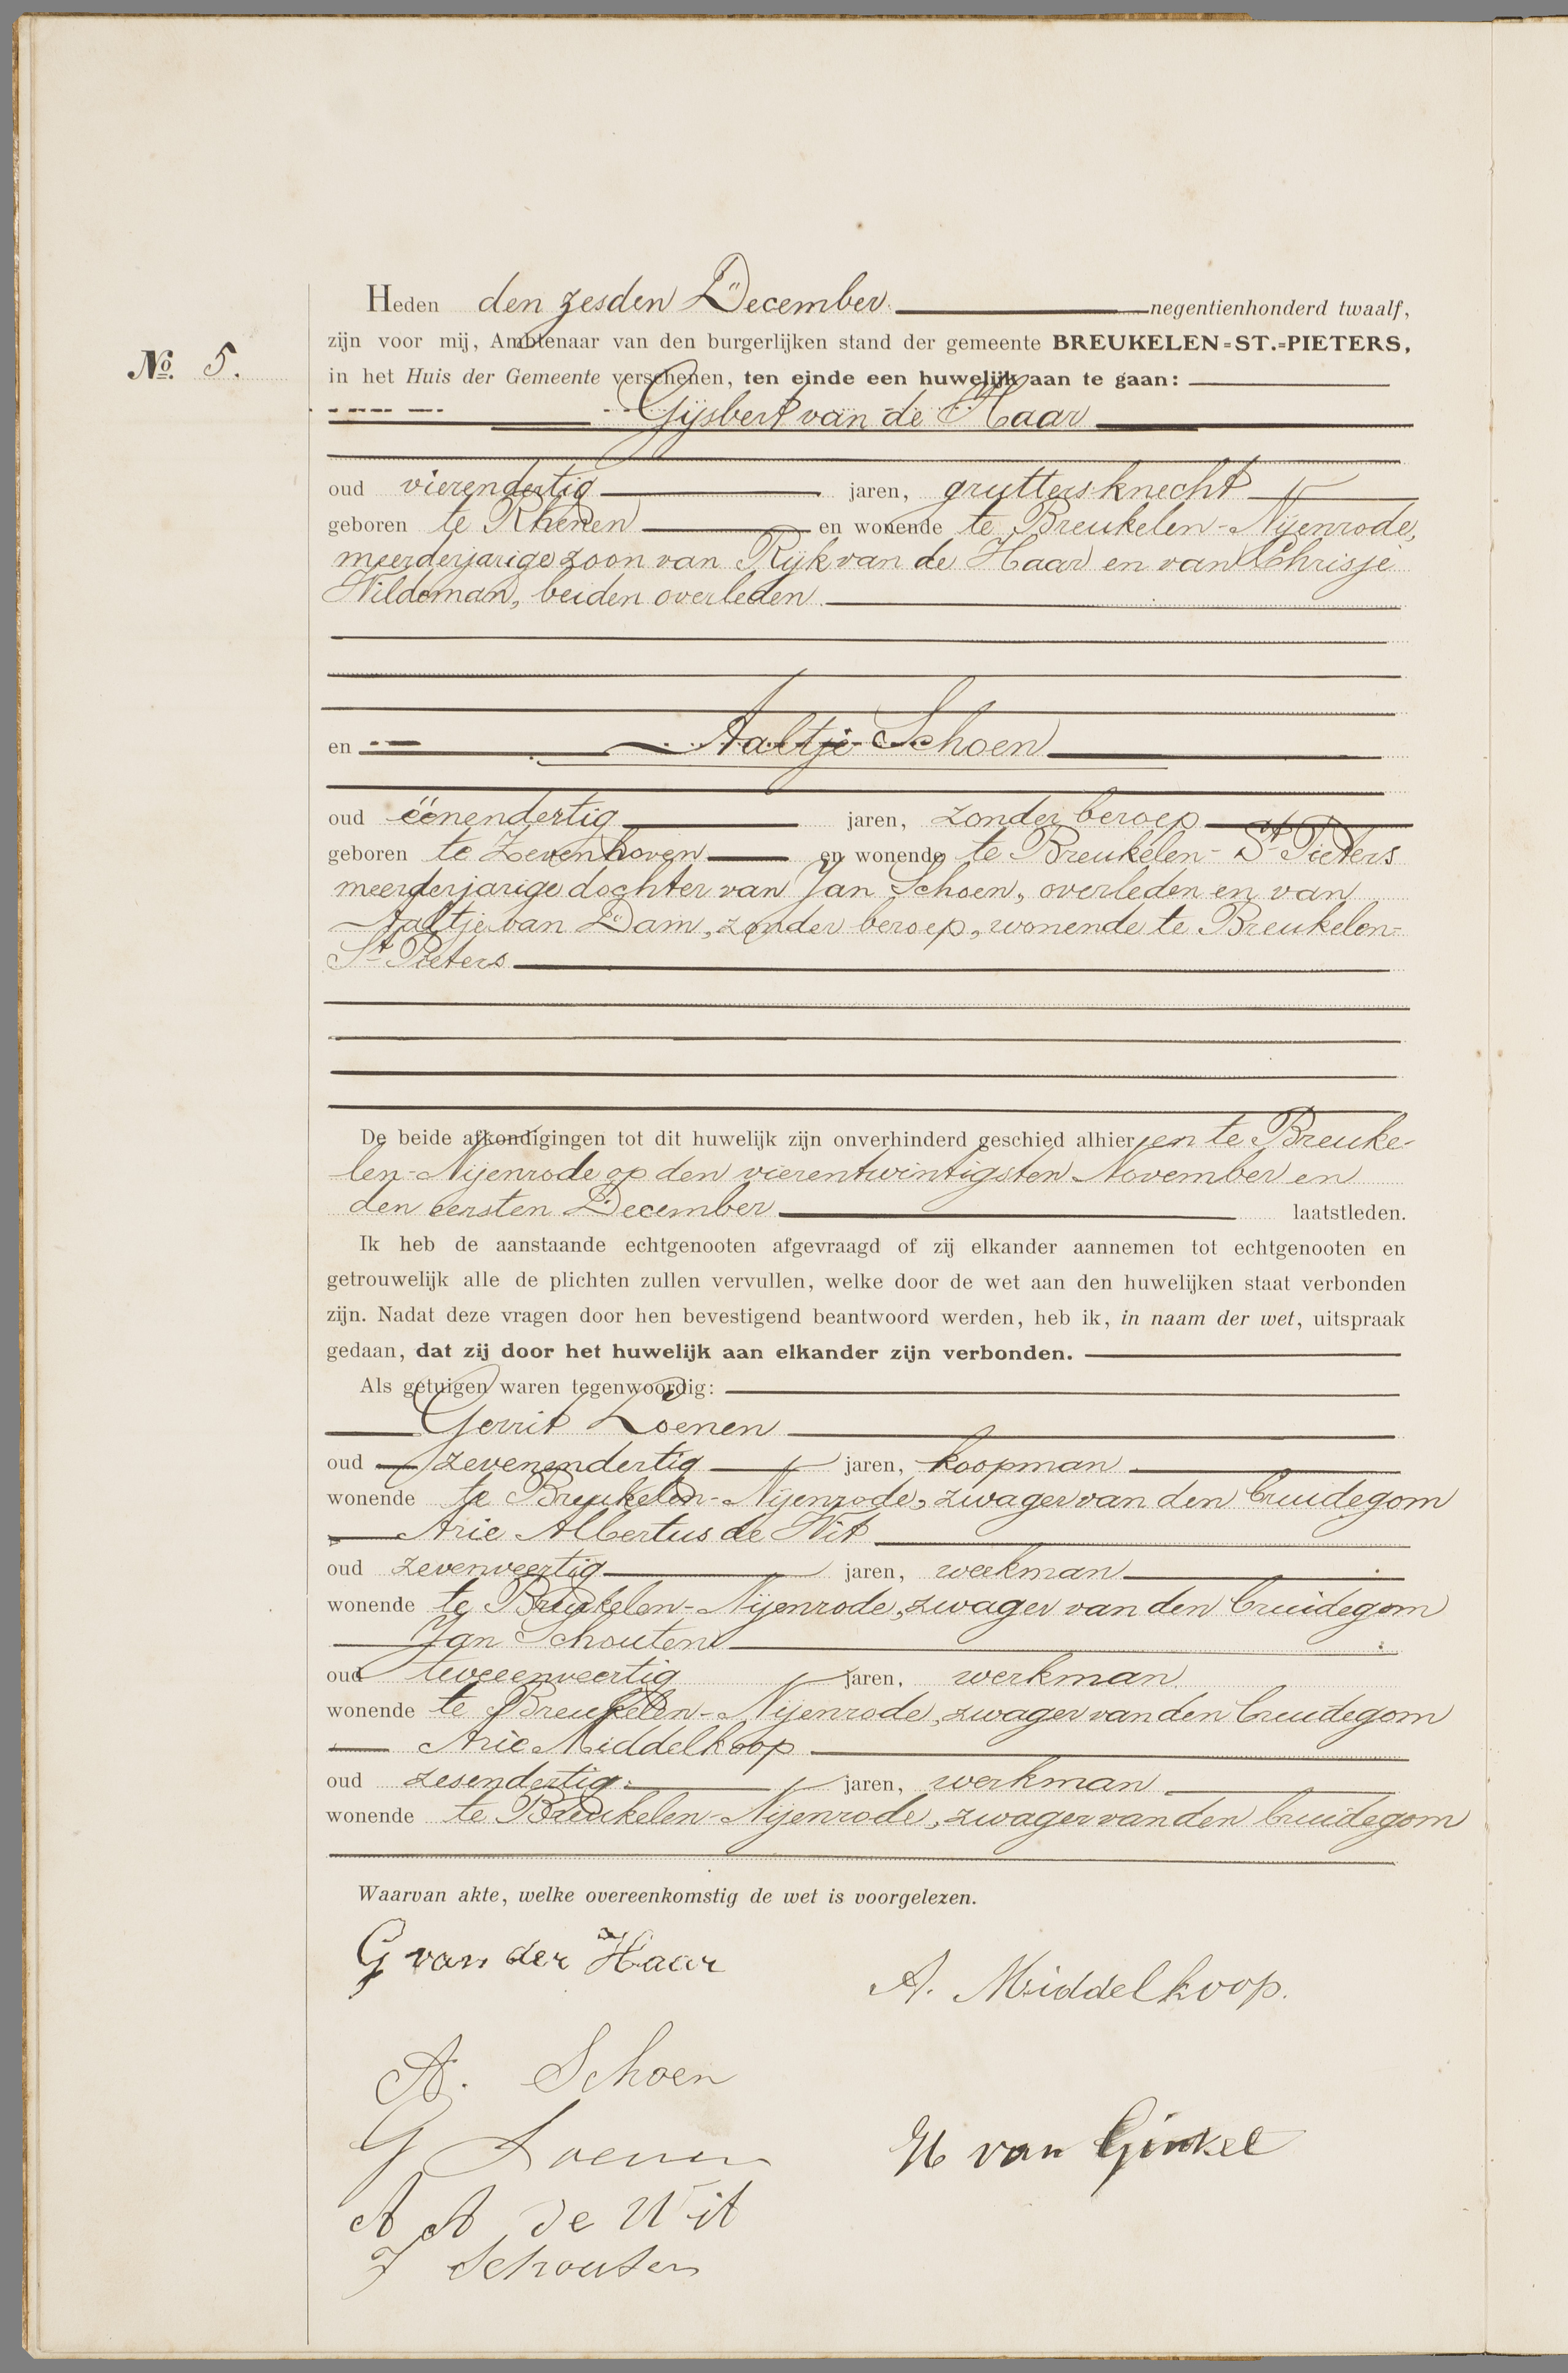 Heden den zesden December negentienhonderd twaalf,
zijn voor mij, Ambtenaar van den burgerlijken stand der gemeente BREUKELEN=ST.=PIETERS,
No. 5.
in het Huis der Gemeente verschenen, ten einde een huwelijk aan te gaan:
Gijsbert van de Haar
oud vierendertig jaren, gruttersknecht
geboren te Rhenen en wonende te Breukelen-Nijenrode,
meerderjarige zoon van Rijk van de Haar en van Chrisje
Wildeman, beiden overleden.
en Aaltje Schoen
oud ëënendertig jaren, zonder beroep
geboren te Zevenhoven en wonende te Breukelen-St Pieters
meerderjarige dochter van Jan Schoen, overleden en van
Aaltje van Dam, zonder beroep, wonende te Breukelen-
St Pieters
De beide afkondigingen tot dit huwelijk zijn onverhinderd geschied alhier en te Breuke-
len-Nijenrode op den vierentwintigsten November en
den eersten December laatstleden.
Ik heb de aanstaande echtgenooten afgevraagd of zij elkander aannemen tot echtgenooten en
getrouwelijk alle de plichten zullen vervullen, welke door de wet aan den huwelijken staat verbonden
zijn. Nadat deze vragen door hen bevestigend beantwoord werden, heb ik, in naam der wet, uitspraak
gedaan, dat zij door het huwelijk aan elkander zijn verbonden.
Als getuigen waren tegenwoordig:
Gerrit Loenen
oud zevenendertig jaren, koopman
wonende te Breukelen-Nijenrode, zwager van den bruidegom
Arie Albertus de Wit
oud zevenveertig jaren, werkman
wonende te Breukelen-Nijenrode, zwager van den bruidegom
Jan Schouten
oud tweeenveertig jaren, werkman
wonende te Breukelen-Nijenrode, zwager van den bruidegom
Arie Middelkoop
oud zesendertig jaren, werkman
wonende te Breukelen-Nijenrode, zwager van den bruidegom
Waarvan akte, welke overeenkomstig de wet is voorgelezen.
G van der Haar
A. Middelkoop.
A. Schoen
G Loenen
H van Ginkel
A A de Wit
J Schouten